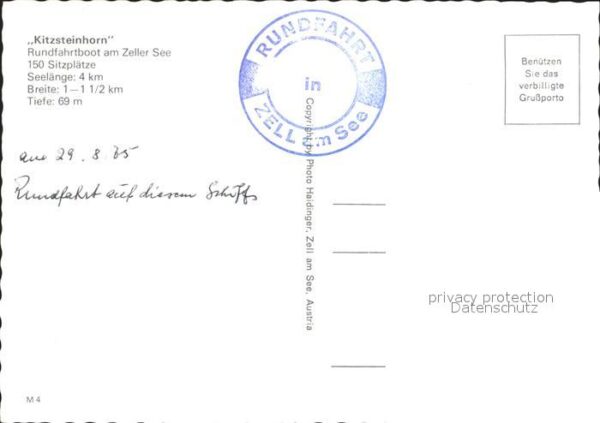 „Kitzsteinhorn"
Rundfahrtboot am Zeller See
150 Sitzplätze
Seelänge: 4 km
Breite: 1—1 1/2 km
Tiefe: 69 m
RUNDFAHRT
in
ZELL am See
Benützen
Sie das
verbilligte
Grußporto
29.8.
Rundfahrt auf diesem Schiff
Copyright by Photo Haidinger, Zell am See, Austria
privacy protection
Datenschutz
M 4